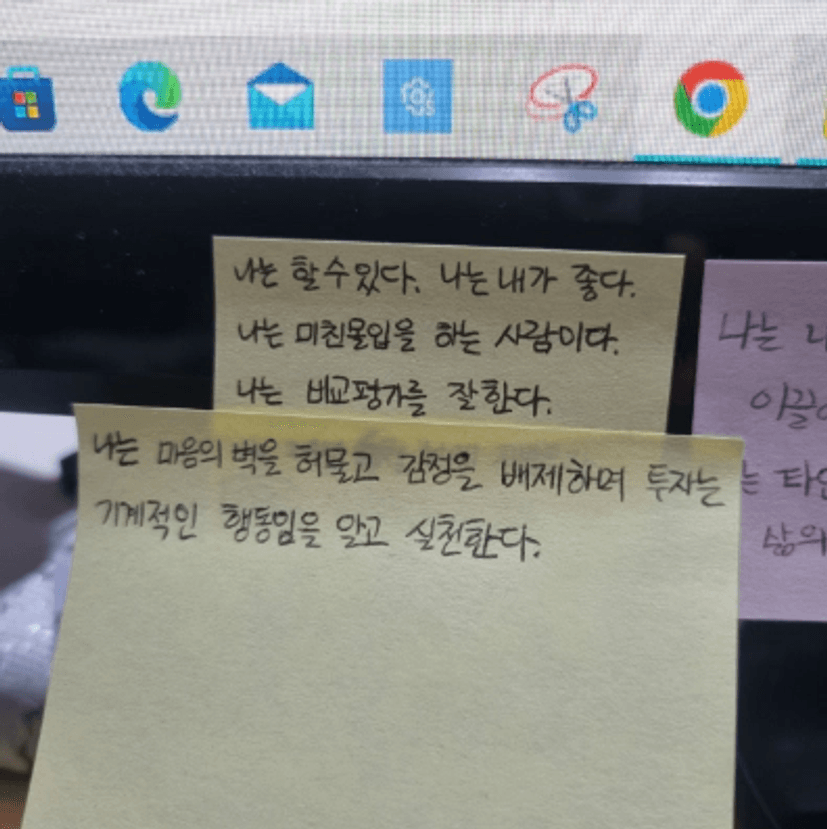 나는 할 수 있다. 나는 내가 좋다.
나는 미친몰입을 하는 사람이다.
나는 비교평가를 잘한다.
나는 마음의 벽을 허물고 감정을 배제하며 투자는
기계적인 행동임을 알고 실천한다.
나는
이끌
는 타인
삶의